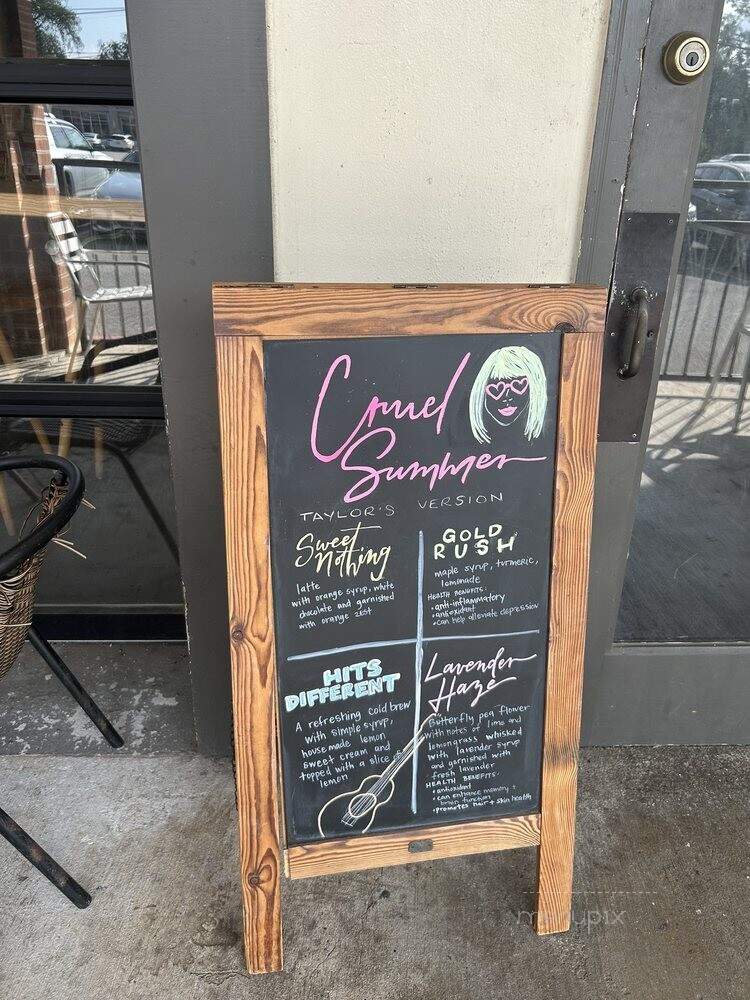 Cruel
Summer
TAYLOR'S VERSION
Sweet
Nothing
latte
with orange syrup, white
chocolate and garnished
with orange zest
GOLD
RUSH
maple syrup, turmeric,
lemonade
HEALTH BENEFITS:
• anti-inflammatory
• antioxidant
• can help alleviate depression
HITS
DIFFERENT
A refreshing cold brew
with simple syrup,
house made lemon
sweet cream and
topped with a slice
lemon
Lavender
Haze
Butterfly pea flower
with notes of lime and
lemongrass whisked
with lavender syrup
and garnished with
fresh lavender
HEALTH BENEFITS:
• antioxidant
• can enhance memory +
brain function
• promotes hair + skin health